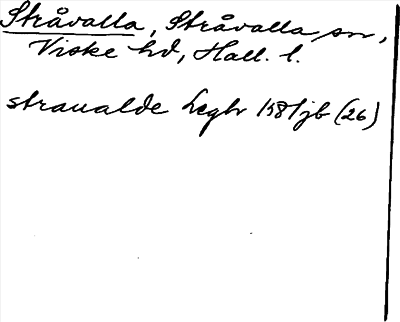 Stråvalla, Stråvalla sn,
Viske hd, Hall. l.
straualde Legbr 1581 jb (26)